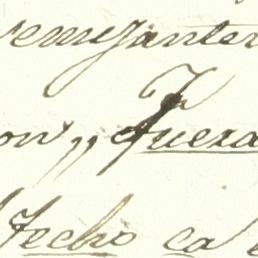 semejantes
on „ Fuera
Fecho ca